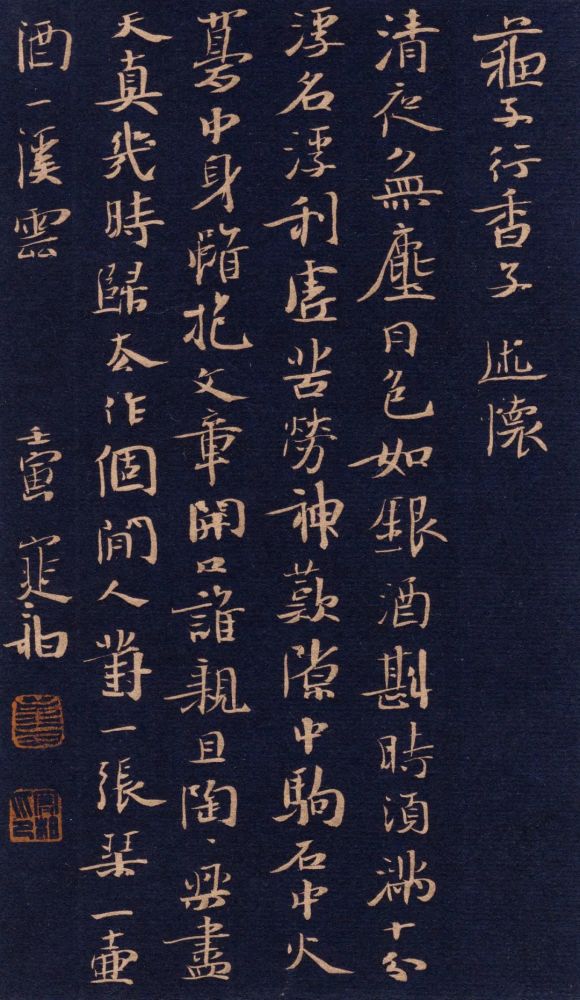 蘇子行香子 述懷
清夜無塵月色如銀酒斟時須滿十分
浮名浮利虛苦勞神歎隙中駒石中火
夢中身雖抱文章開口誰親且陶〻興盡
天真幾時歸去作個閒人對一張琹一壺
酒一溪雲 壬寅